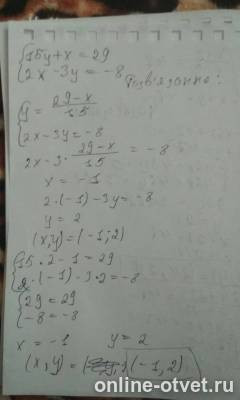 {15y + x = 29
{2x - 3y = -8
Розв'язання:
{y = (29-x)/15
{2x - 3y = -8
2x - 3 · (29-x)/15 = -8
x = -1
2·(-1) - 3y = -8
y = 2
(x,y) = (-1;2)
{15·2 - 1 = 29
{2·(-1) - 3·2 = -8
{29 = 29
{-8 = -8
x = -1 y = 2
(x,y) = (-1,2)
online-otvet.ru